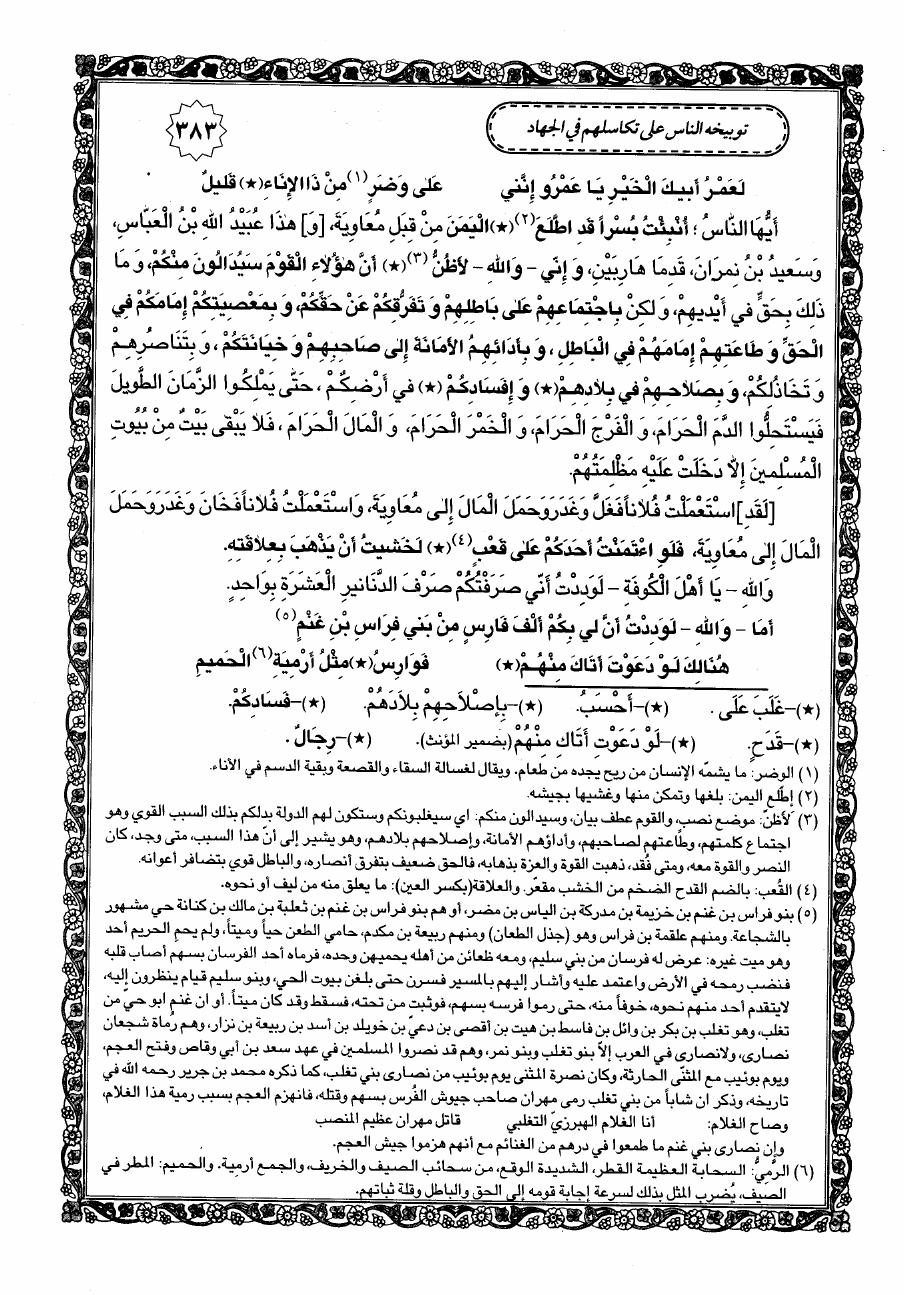 توبيخه الناس على تكاسلهم في الجهاد
٣٨٣
لَعَمْرُ أَبيكَ الْخَيْرِ يَا عَمْرُو إِنَّني عَلىٰ وَضَرٍ(١) مِنْ ذَا الإِنَاءِ(★) قَليلٌ
أَيُّهَا النَّاسُ؛ أُنْبِئْتُ بُسْراً قَدِ اطَّلَعَ(٢)(★) الْيَمَنَ مِنْ قِبَلِ مُعَاوِيَةَ، [وَ] هٰذَا عُبَيْدُ اللهِ بْنُ الْعَبَّاسِ،
وَسَعيدُ بْنُ نِمرَانَ، قَدِمَا هَارِبَيْنِ، وَ إِنّي - وَاللهِ - لأَظُنُّ(٣)(★) أَنَّ هٰؤُلاَءِ الْقَوْمَ سَيُدَالُونَ مِنْكُمْ، وَ مَا
ذَلِكَ بِحَقٍّ في أَيْديهِمْ، وَ لٰكِنْ بِاجْتِمَاعِهِمْ عَلىٰ بَاطِلِهِمْ وَ تَفَرُّقِكُمْ عَنْ حَقِّكُمْ، وَ بِمَعْصِيَتِكُمْ إِمَامَكُمْ فِي
الْحَقِّ وَ طَاعَتِهِمْ إِمَامَهُمْ فِي الْبَاطِلِ، وَ بِأَدَائِهِمُ الأَمَانَةَ إِلىٰ صَاحِبِهِمْ وَ خِيَانَتِكُمْ، وَ بِتَنَاصُرِهِمْ
وَ تَخَاذُلِكُمْ، وَ بِصَلاَحِهِمْ في بِلاَدِهِمْ(★) وَ إِفْسَادِكُمْ (★) في أَرْضِكُمْ، حَتّىٰ يَمْلِكُوا الزَّمَانَ الطَّويلَ
فَيَسْتَحِلُّوا الدَّمَ الْحَرَامَ، وَ الْفَرْجَ الْحَرَامَ، وَ الْخَمْرَ الْحَرَامَ، وَ الْمَالَ الْحَرَامَ، فَلاَ يَبْقى بَيْتٌ مِنْ بُيُوتِ
الْمُسْلِمينَ إِلاَّ دَخَلَتْ عَلَيْهِ مَظْلِمَتُهُمْ.
[لَقَدِ] اسْتَعْمَلْتُ فُلاَناً فَغَلَّ وَغَدَرَ وَحَمَلَ الْمَالَ إِلىٰ مُعَاوِيَةَ، وَاسْتَعْمَلْتُ فُلاَناً فَخَانَ وَغَدَرَ وَحَمَلَ
الْمَالَ إِلىٰ مُعَاوِيَةَ، فَلَوِ ائْتَمَنْتُ أَحَدَكُمْ عَلىٰ قَعْبٍ(٤)(★) لَخَشيتُ أَنْ يَذْهَبَ بِعِلاَقَتِهِ.
وَاللهِ - يَا أَهْلَ الْكُوفَةِ - لَوَدِدْتُ أَنّي صَرَفْتُكُمْ صَرْفَ الدَّنَانيرِ الْعَشَرَةَ بِوَاحِدٍ.
أَمَا - وَاللهِ - لَوَدِدْتُ أَنَّ لي بِكُمْ أَلْفَ فَارِسٍ مِنْ بَني فِرَاسِ بْنِ غَنْمٍ(٥)
هُنَالِكَ لَوْ دَعَوْتَ أَتَاكَ مِنْهُمْ(★) فَوَارِسُ(★) مِثْلُ أَرْمِيَةِ(٦) الْحَميمِ
(★)-غَلَبَ عَلَى. (★)-أَحْسَبُ. (★)-بِإِصْلاَحِهِمْ بِلاَدَهُمْ. (★)-فَسَادِكُمْ.
(★)-قَدَحٍ. (★)-لَوْ دَعَوْتِ أَتَاكِ مِنْهُمْ(بضمير المؤنث). (★)-رِجَالٌ.
(١) الوضر: ما يشمّه الإنسان من ريح يجده من طعام. ويقال لغسالة السقاء والقصعة وبقية الدسم في الأناء.
(٢) إطّلع اليمن: بلغها وتمكن منها وغشيها بجيشه.
(٣) لأظنّ: موضع نصب، والقوم عطف بيان، وسيدالون منكم: اي سيغلبونكم وستكون لهم الدولة بدلكم بذلك السبب القوي وهو
اجتماع كلمتهم، وطاعتهم لصاحبهم، وأداؤهم الأمانة، وإصلاحهم بلادهم، وهو يشير إلى أنّ هذا السبب، متى وجد، كان
النصر والقوة معه، ومتى فُقد، ذهبت القوة والعزة بذهابه، فالحق ضعيف بتفرق أنصاره، والباطل قوي بتضافر أعوانه.
(٤) القُعب: بالضم القدح الضخم من الخشب مقعّر. والعلاقة(بكسر العين): ما يعلق منه من ليف أو نحوه.
(٥) بنو فراس بن غنم بن خزيمة بن مدركة بن الياس بن مضر، أو هم بنو فراس بن غنم بن ثعلبة بن مالك بن كنانة حي مشهور
بالشجاعة. ومنهم علقمة بن فراس وهو (جذل الطعان) ومنهم ربيعة بن مكدم، حامي الظعن حياً وميتاً، ولم يحمِ الحريم أحد
وهو ميت غيره: عرض له فرسان من بني سليم، ومعه ظعائن من أهله يحميهن وحده، فرماه أحد الفرسان بسهم أصاب قلبه
فنصب رمحه في الأرض واعتمد عليه وأشار إليهم بالمسير فسرن حتى بلغن بيوت الحي، وبنو سليم قيام ينظرون إليه،
لايتقدم أحد منهم نحوه، خوفاً منه، حتى رموا فرسه بسهم، فوثبت من تحته، فسقط وقد كان ميتاً. أو ان غنم ابو حي من
تغلب، وهو تغلب بن بكر بن وائل بن فاسط بن هيت بن أقصى بن دعيّ بن خويلد بن أسد بن ربيعة بن نزار، وهم رُماة شجعان
نصارى، ولانصارى في العرب إلاّ بنو تغلب وبنو نمر، وهم قد نصروا المسلمين في عهد سعد بن أبي وقاص وفتح العجم،
ويوم بوئيب مع المثنّى الحارثة، وكان نصرة المثنى يوم بوئيب من نصارى بني تغلب، كما ذكره محمد بن جرير رحمه الله في
تاريخه، وذكر ان شاباً من بني تغلب رمى مهران صاحب جيوش الفُرس بسهم وقتله، فانهزم العجم بسبب رمية هذا الغلام،
وصاح الغلام: أنا الغلام الهبرزيّ التغلبي قاتل مهران عظيم المنصب
وإن نصارى بني غنم ما طمعوا في درهم من الغنائم مع أنهم هزموا جيش العجم.
(٦) الرّميُّ: السحابة العظيمة القطر، الشديدة الوقع، من سحائب الصيف والخريف، والجمع أرمية. والحميم: المطر في
الصيف، يُضرب المثل بذلك لسرعة إجابة قومه إلى الحق والباطل وقلة ثباتهم.